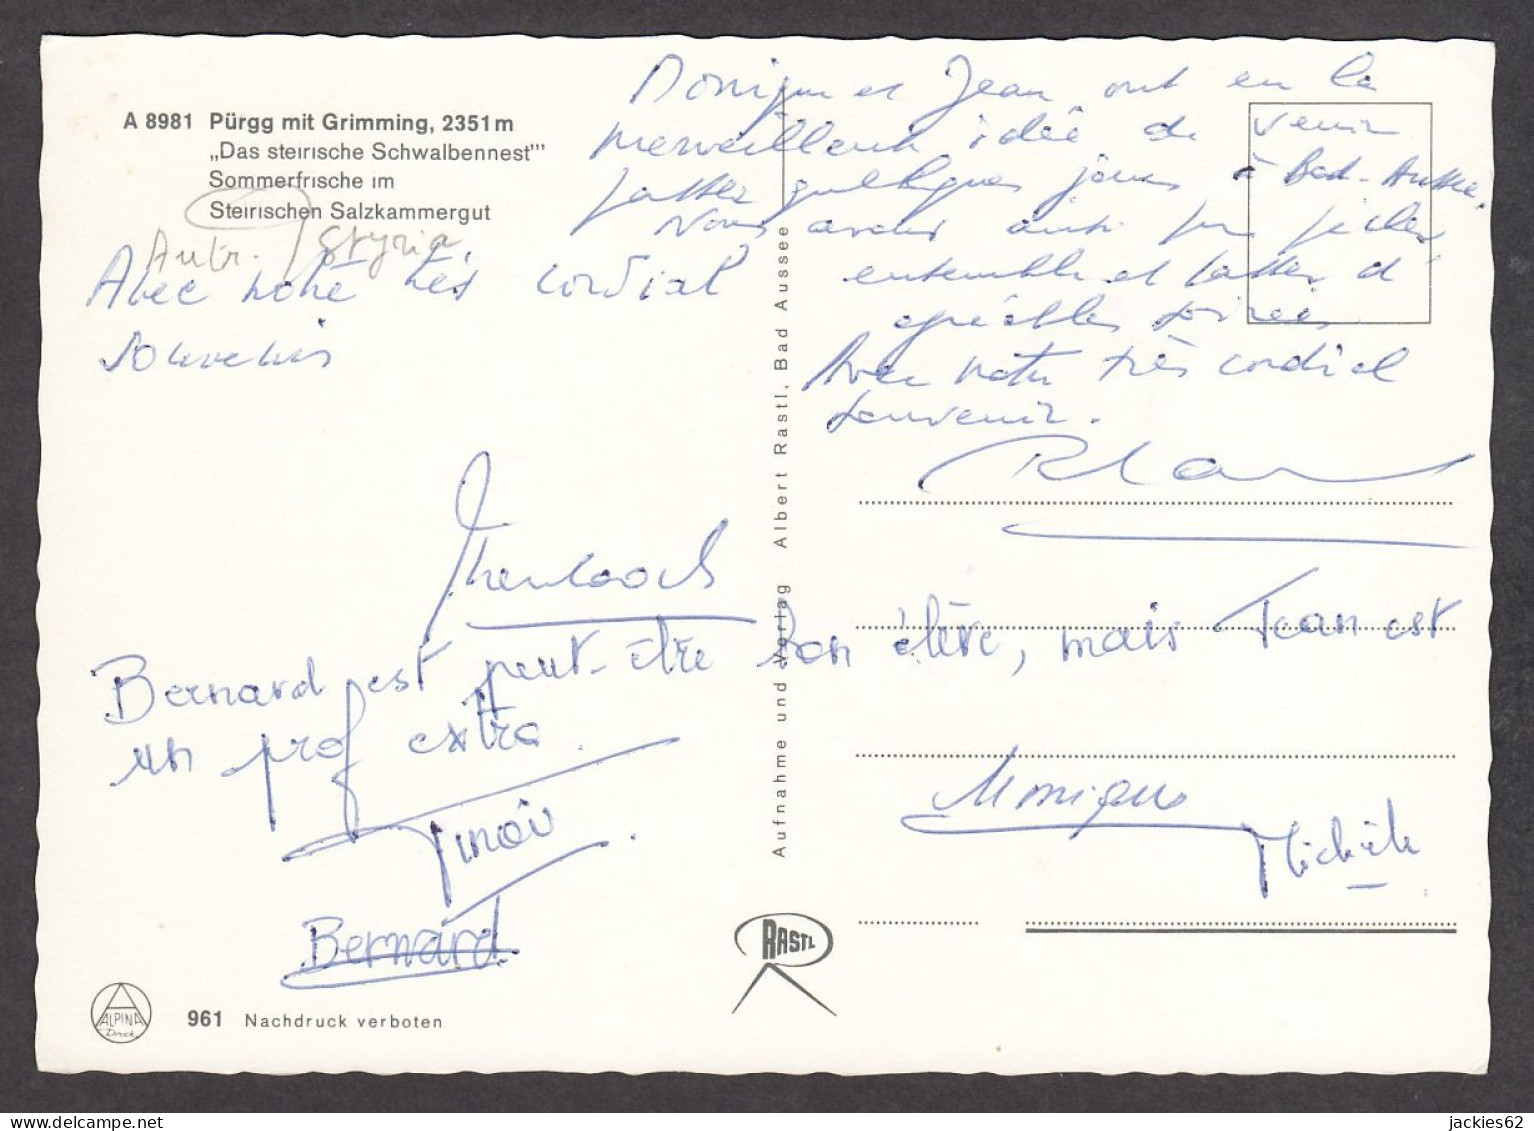 A 8981 Pürgg mit Grimming, 2351 m
„Das steirische Schwalbennest"'
Sommerfrische im
Steirischen Salzkammergut
Autr. / Styria
Monique et Jean ont eu la
merveilleuse idée de venir
passer quelques jours à Bad-Aussee.
Nous avons ainsi pu
ensemble et passer d'
agréables soirées
Avec notre très cordial
souvenir.
Avec notre très cordial
souvenir
Bernard est peut-être bon élève, mais Jean est
un prof extra.
Monique
Michèle
Bernard
Aufnahme und Verlag Albert Rastl, Bad Aussee
RASTL
ALPINA
Druck
961 Nachdruck verboten
jackies62